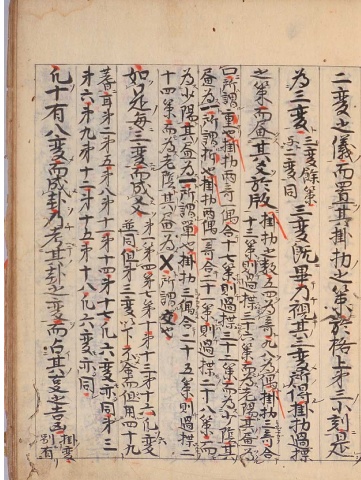 二變之儀而置其掛扐之策於格上第三小刻是
為三變
三變餘策
與二變同
三變既畢乃視其三變所得掛扐過揲
之策而畫其爻於版
掛扐之數五四為奇九八為偶掛扐三奇合
十三策則過揲三十六策而為老陽其畫為
口所謂重也掛扐兩奇一偶合十七策則過揲三十二策而為少陰其
畫為 所謂拆也掛扐兩偶一奇合二十一策則過揲二十八策而
為少陽其畫為一所謂單也掛扐三偶合二十五策則過揲二
十四策而為老陰其畫為X所謂交也
如是每三變而成爻
第一第四第七第十第十三第十六凡六變
並同但第三變以下不命而但用四十九
蓍耳第二第五第八第十一第十四第十七凡六變亦同第三
第六第九第十二第十五第十八凡六變亦同
凡十有八變而成卦乃考其卦之變而占其事之吉凶
卦變
別有